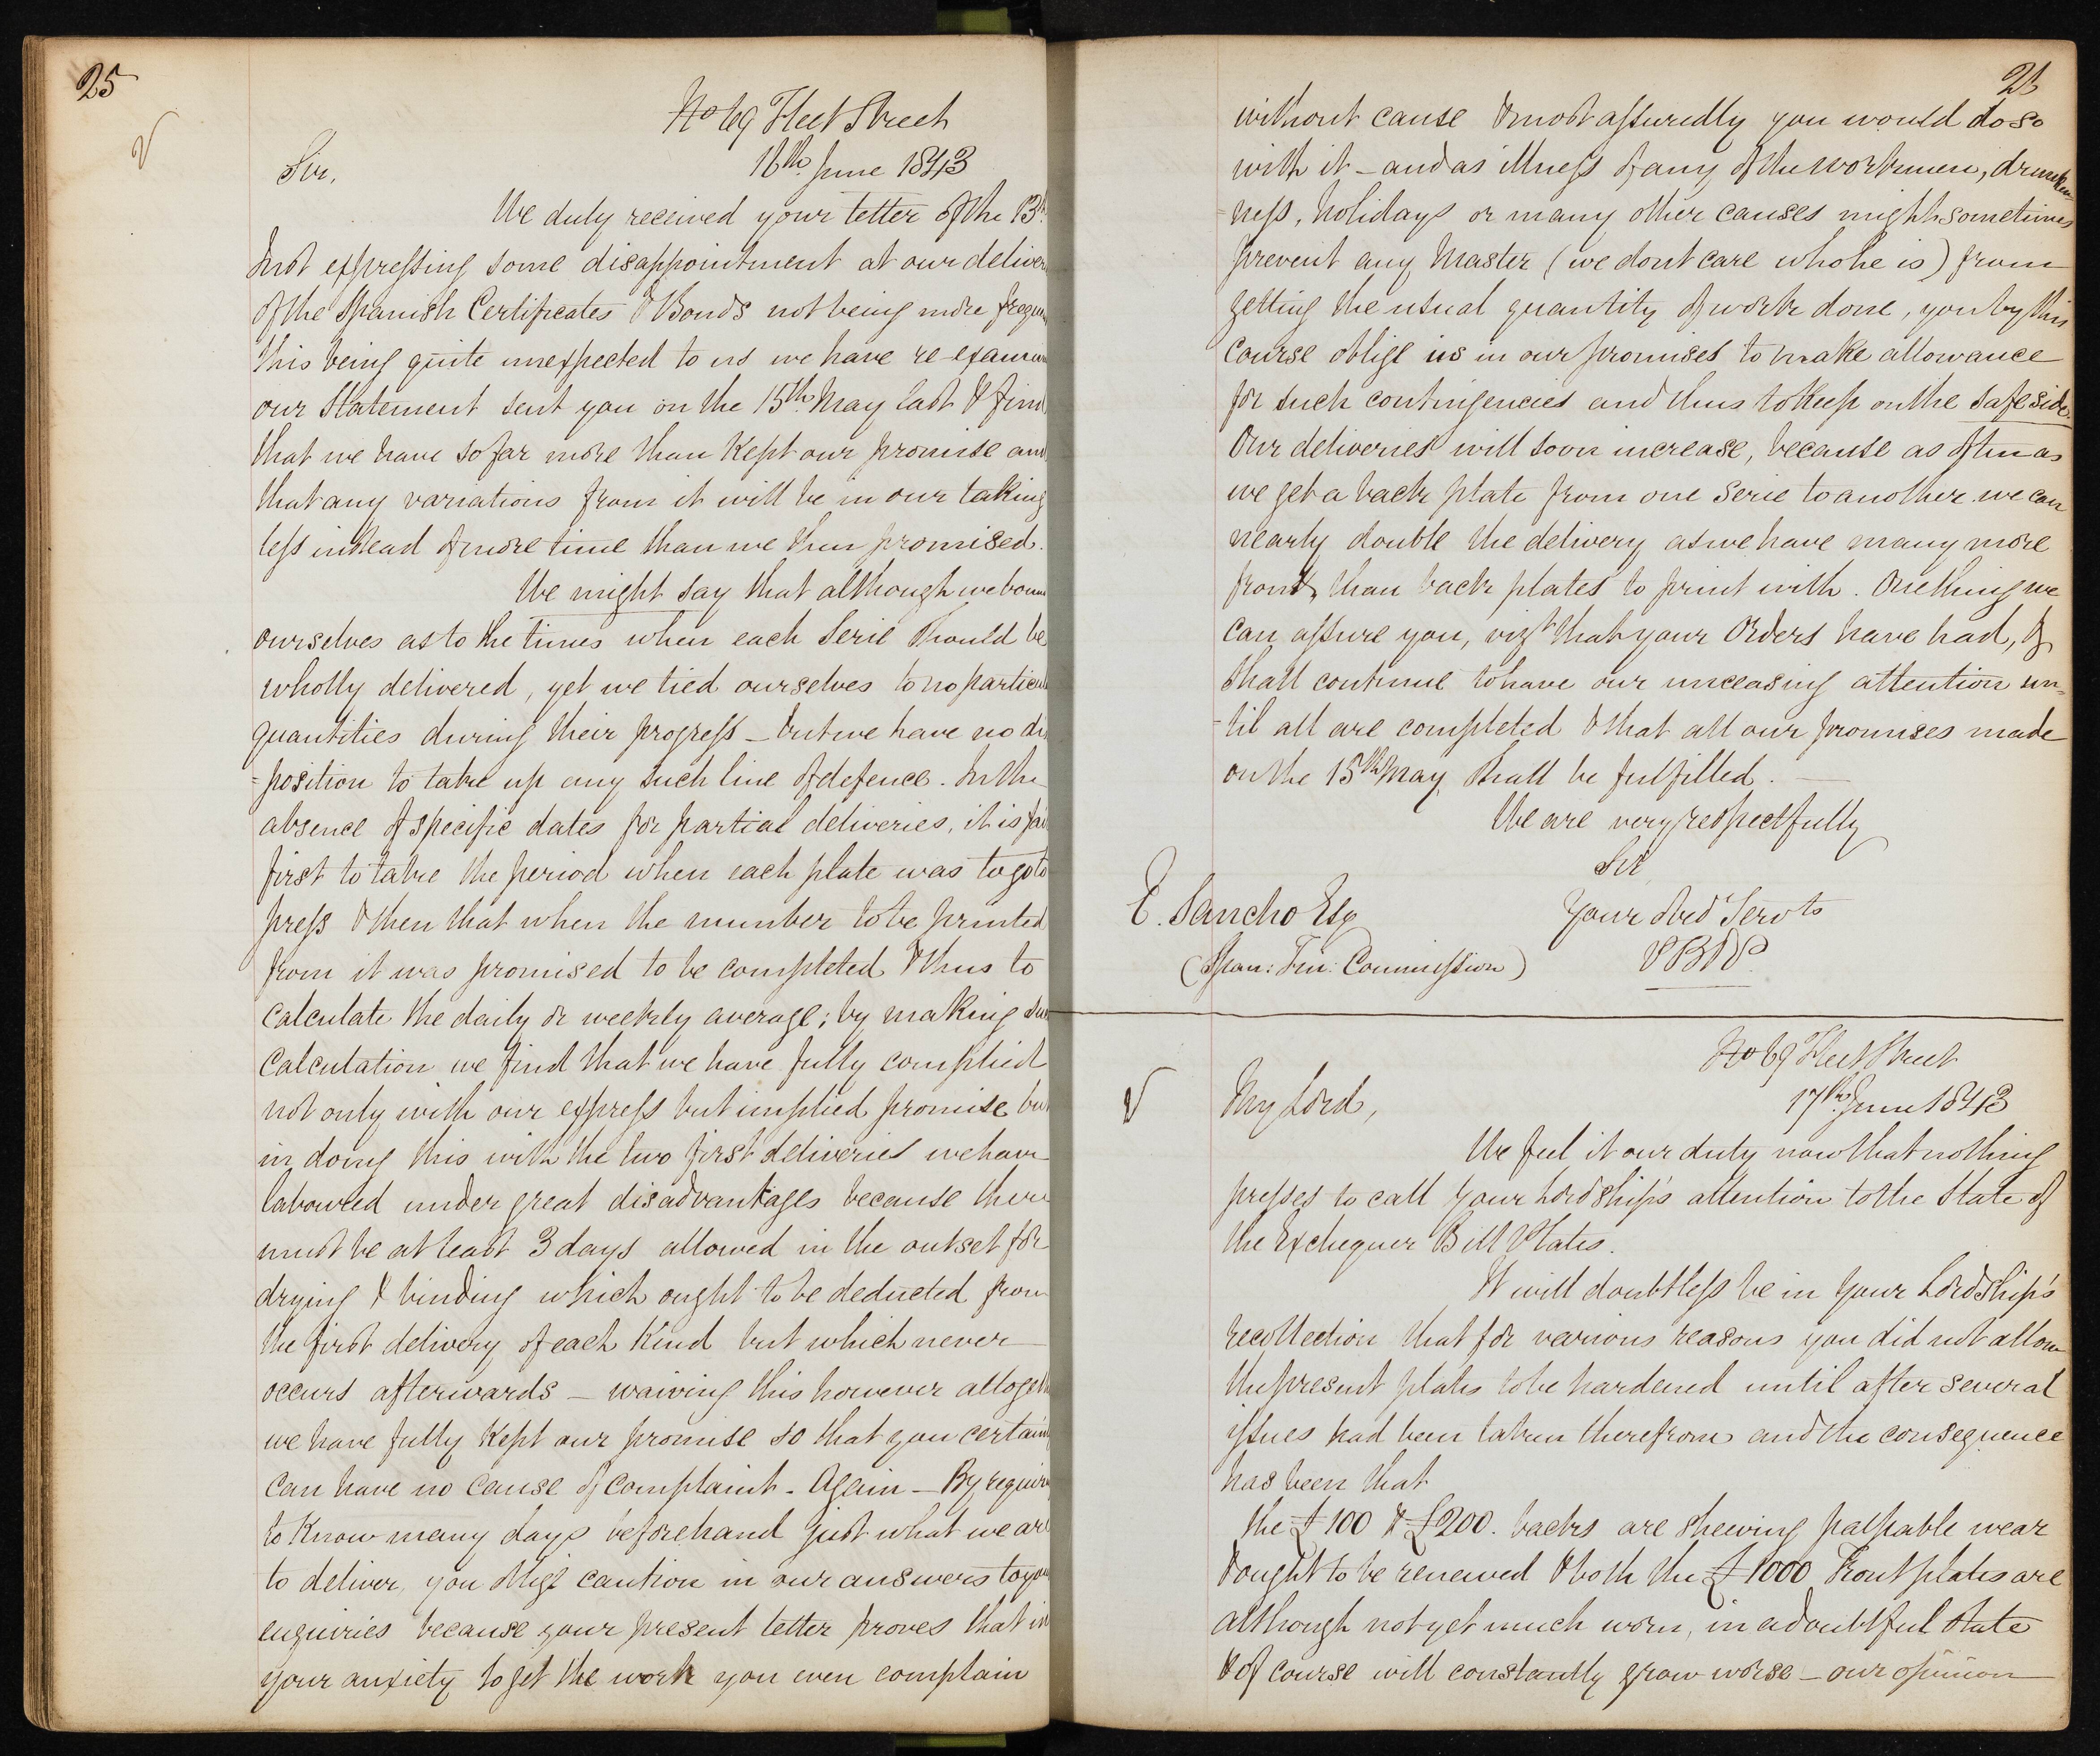 25
No 69 Fleet Street
16th June 1843
Sir,
We duly received your letter of the 13th
Inst expressing some disappointment at our deliver
of the Spanish Certificates & Bonds not being more frequ
this being quite unexpected to us we have re-examin
our Statement sent you on the 15th May last & find
that we have so far more than kept our promise and
that any variations from it will be in our taking
less instead of more time than we then promised.
We might say that although we boun
ourselves as to the times when each Serie should be
wholly delivered, yet we tied ourselves to no particu
quantities during their progress - but we have no dis
=position to take up any such line of defence. In the
absence of specific dates for partial deliveries, it is fai
first to take the period when each plate was to go to
press & then that when the number to be printed
from it was promised to be completed & thus to
calculate the daily or weekly average; by making su
calculation we find that we have fully complied
not only with our express but implied promise but
in doing this with the two first deliveries we have
laboured under great disadvantages because there
must be at least 3 days allowed in the outset for
drying & binding which ought to be deducted from
the first delivery of each kind but which never
occurs afterwards - waiving this however altogeth
we have fully kept our promise so that you certain
can have no cause of complaint - Again - By requir
to know many days beforehand just what we are
to deliver, you oblige caution in our answers to you
enquiries because your present letter proves that in
your anxiety to get the work you even complain
26
without cause & most assuredly you would do so
with it - and as illness of any of the workmen, drunken
=ness, holidays or many other causes might sometimes
prevent any Master (we dont care who he is) from
getting the usual quantity of work done, you by this
course oblige us in our promises to make allowance
for such contingencies and thus to keep on the safe side.
Our deliveries will soon increase, because as often as
we get a back plate from one Serie to another we can
nearly double the delivery as we have many more
front than back plates to print with. One thing we
can assure you, vizt that your Orders have had, &
shall continue to have our unceasing attention un=
=til all are completed & that all our promises made
on the 15th May shall be fulfilled.
We are very respectfully
Sir
E. Sancho Esq
Your Obed Servts
(Span: Fin: Commission)
PB&P
No 69 Fleet Street
17th June 1843
My Lord,
We feel it our duty now that nothing
presses to call your Lordship's attention to the State of
the Exchequer Bill Plates.
It will doubtless be in your Lordship's
recollection that for various reasons you did not allow
the present plates to be hardened until after several
issues had been taken therefrom and the consequence
has been that
the £100 & £200. backs are shewing palpable wear
& ought to be renewed & both the £1000 Front plates are
although not yet much worn, in a doubtful state
& of course will constantly grow worse - our opinion